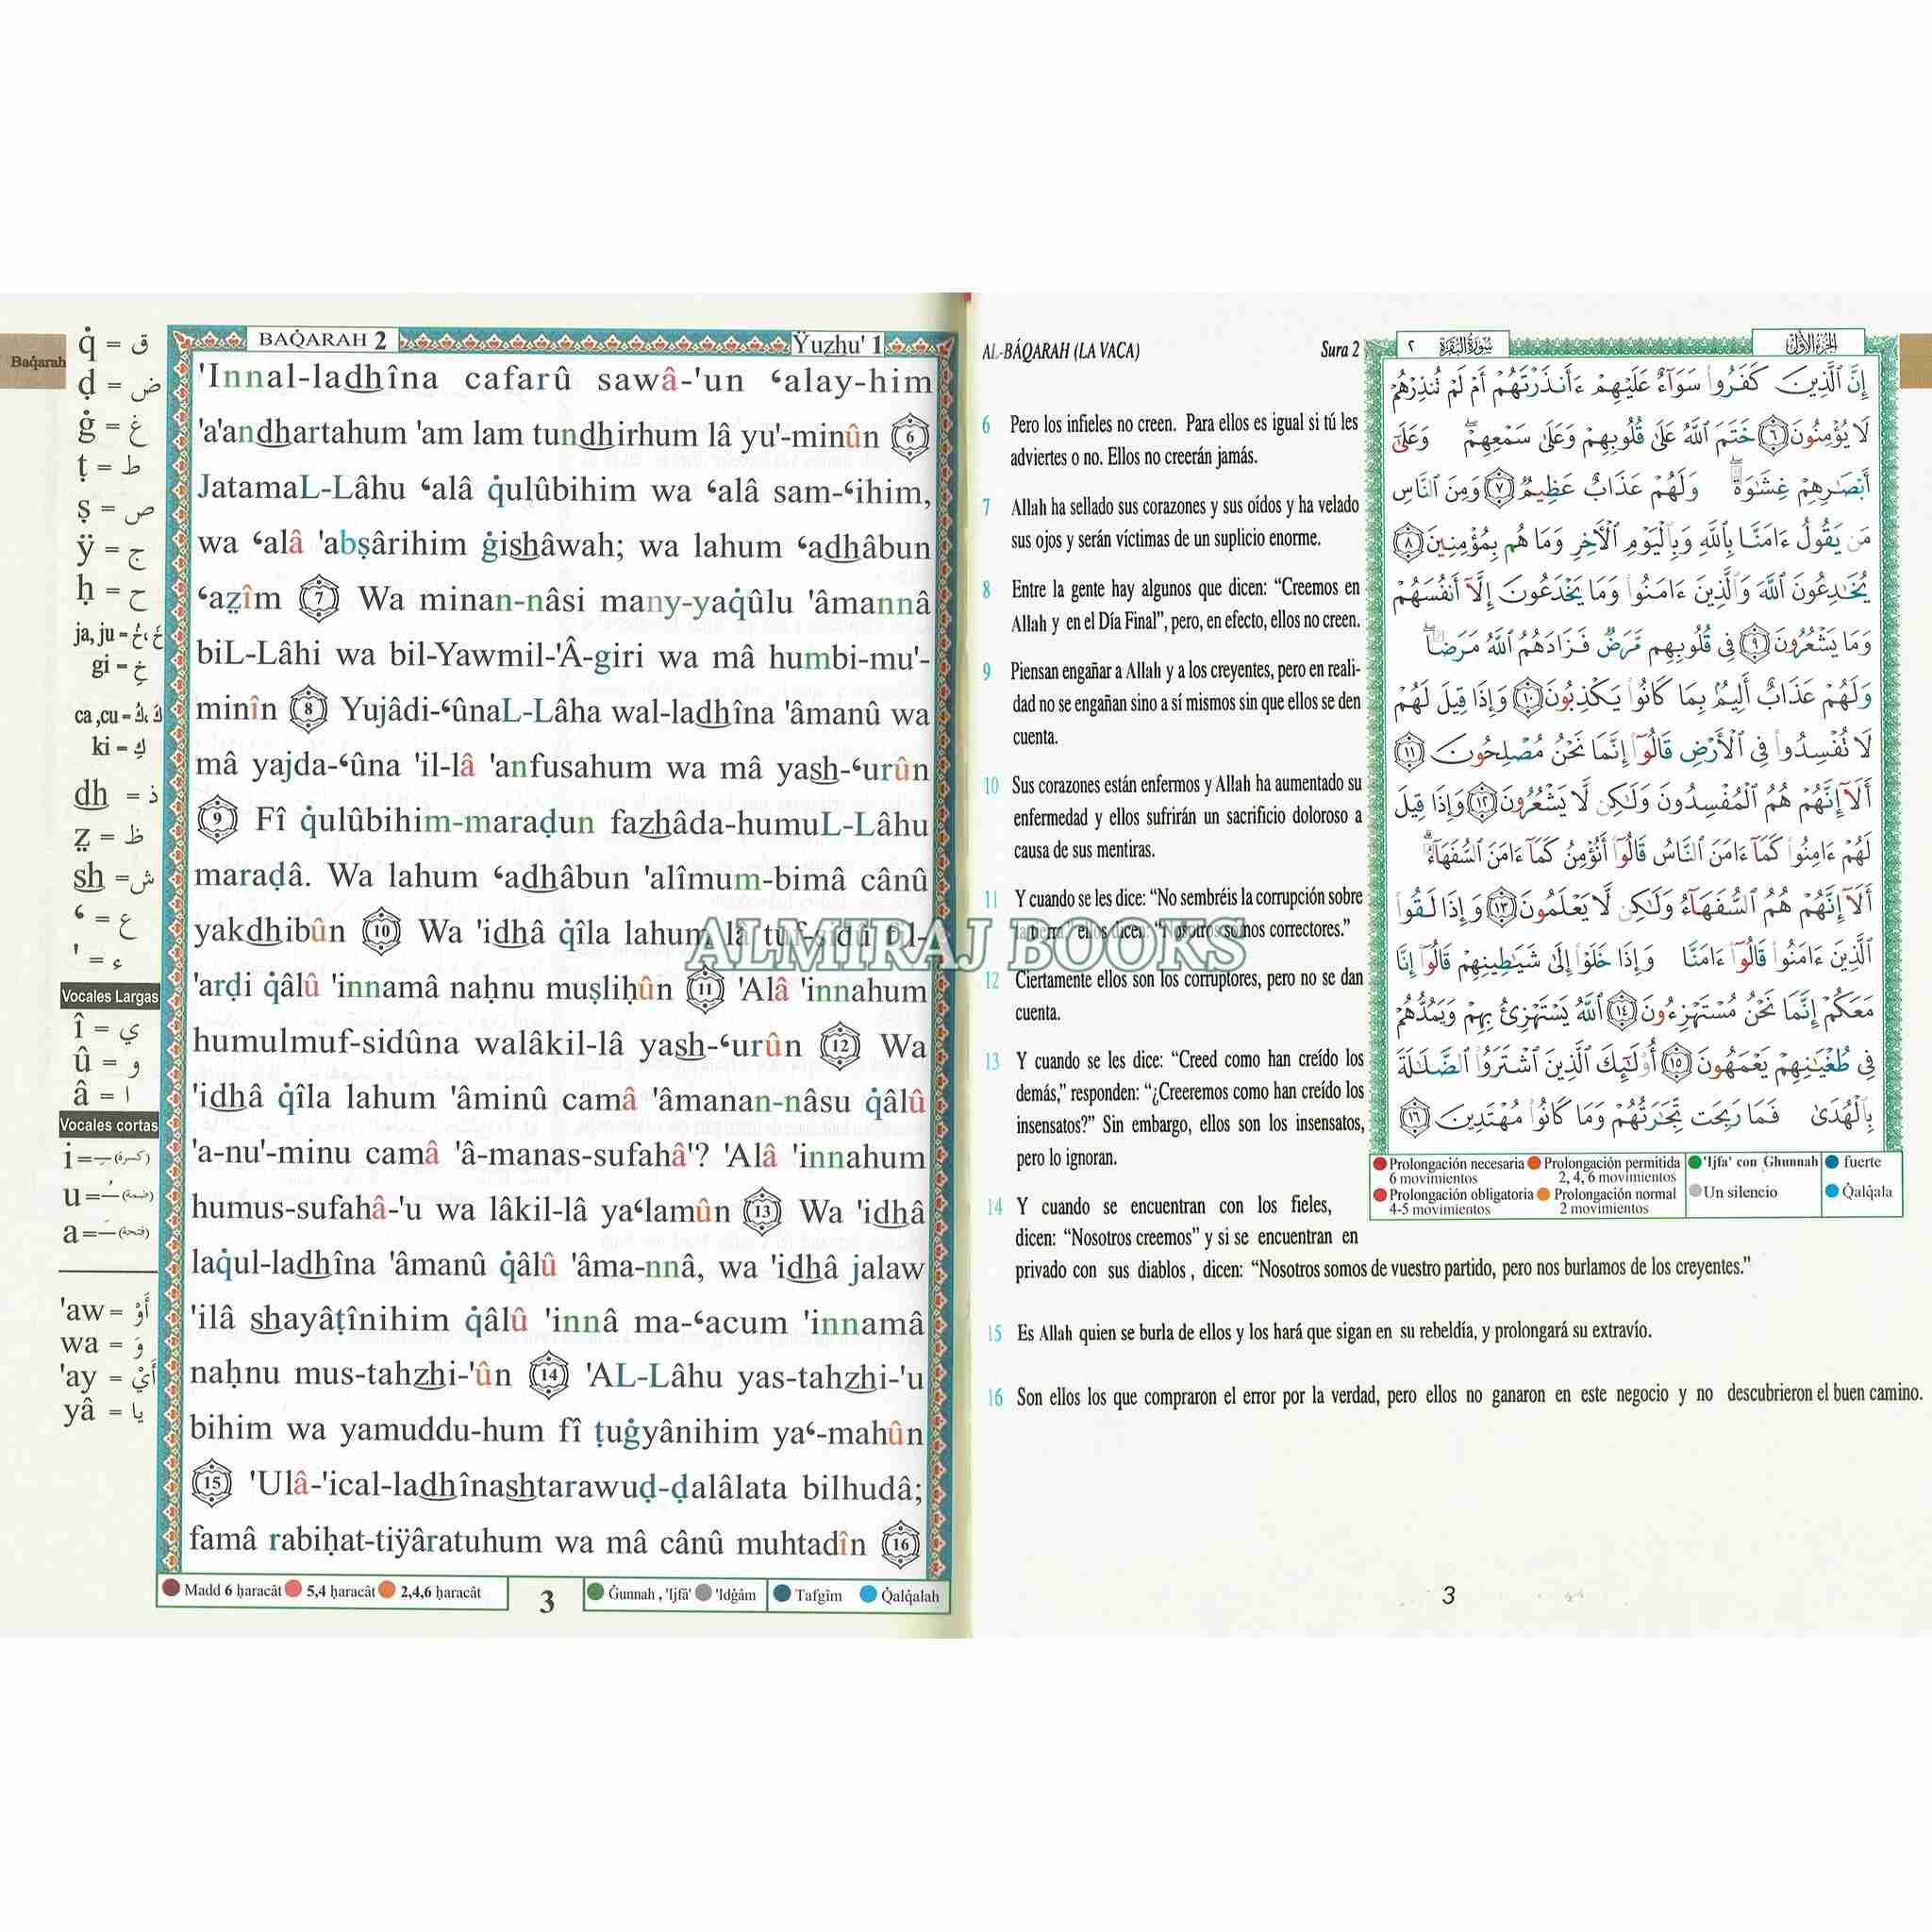 Baq̇arah
q̇ = ق
ḍ = ض
ġ = غ
ṭ = ط
ṣ = ص
ÿ = ج
ḥ = ح
ja, ju = خَ، خُ
gi = خِ
ca ,cu = كَ، كُ
ki = كِ
dh = ذ
ẓ = ظ
sh = ش
ʻ = ع
' = ء
Vocales Largas
î = ي
û = و
â = ا
Vocales cortas
i = ـِ (كسرة)
u = ـُ (ضمة)
a = ـَ (فتحة)
'aw = أَوْ
wa = وَ
'ay = أَيْ
yâ = يا
BAQ̇ARAH 2
Ÿuzhu' 1
'Innal-ladhîna cafarû sawâ-'un ʻalay-him
'a'andhartahum 'am lam tundhirhum lâ yu'-minûn 6
JatamaL-Lâhu ʻalâ q̇ulûbihim wa ʻalâ sam-ʻihim,
wa ʻalâ 'abṣârihim ġishâwah; wa lahum ʻadhâbun
ʻaẓîm 7 Wa minan-nâsi many-yaq̇ûlu 'âmannâ
biL-Lâhi wa bil-Yawmil-'Â-giri wa mâ humbi-mu'-
minîn 8 Yujâdi-ʻûnaL-Lâha wal-ladhîna 'âmanû wa
mâ yajda-ʻûna 'il-lâ 'anfusahum wa mâ yash-ʻurûn
9 Fî q̇ulûbihim-maraḍun fazhâda-humuL-Lâhu
maraḍâ. Wa lahum ʻadhâbun 'alîmum-bimâ cânû
yakdhibûn 10 Wa 'idhâ q̇îla lahum lâ tuf-sidû fil-
'arḍi q̇âlû 'innamâ naḥnu muṣliḥûn 11 'Alâ 'innahum
humulmuf-sidûna walâkil-lâ yash-ʻurûn 12 Wa
'idhâ q̇îla lahum 'âminû camâ 'âmanan-nâsu q̇âlû
'a-nu'-minu camâ 'â-manas-sufahâ'? 'Alâ 'innahum
humus-sufahâ-'u wa lâkil-lâ yaʻlamûn 13 Wa 'idhâ
laq̇ul-ladhîna 'âmanû q̇âlû 'âma-nnâ, wa 'idhâ jalaw
'ilâ shayâṭînihim q̇âlû 'innâ ma-ʻacum 'innamâ
naḥnu mus-tahzhi-'ûn 14 'AL-Lâhu yas-tahzhi-'u
bihim wa yamuddu-hum fî ṭuġyânihim yaʻ-mahûn
15 'Ulâ-'ical-ladhînashtarawuḍ-ḍalâlata bilhudâ;
famâ rabiḥat-tiÿâratuhum wa mâ cânû muhtadîn 16
Madd 6 ḥaracât 5,4 ḥaracât 2,4,6 ḥaracât
3
Ġunnah , 'Ijfâ' 'Idġâm Tafgîm Q̇alq̇alah
AL-BÁQARAH (LA VACA) Sura 2
6 Pero los infieles no creen. Para ellos es igual si tú les
adviertes o no. Ellos no creerán jamás.
7 Allah ha sellado sus corazones y sus oídos y ha velado
sus ojos y serán víctimas de un suplicio enorme.
8 Entre la gente hay algunos que dicen: “Creemos en
Allah y en el Día Final”, pero, en efecto, ellos no creen.
9 Piensan engañar a Allah y a los creyentes, pero en reali-
dad no se engañan sino a sí mismos sin que ellos se den
cuenta.
10 Sus corazones están enfermos y Allah ha aumentado su
enfermedad y ellos sufrirán un sacrificio doloroso a
causa de sus mentiras.
11 Y cuando se les dice: “No sembréis la corrupción sobre
la tierra,” ellos dicen: “Nosotros somos correctores.”
12 Ciertamente ellos son los corruptores, pero no se dan
cuenta.
13 Y cuando se les dice: “Creed como han creído los
demás,” responden: “¿Creeremos como han creído los
insensatos?” Sin embargo, ellos son los insensatos,
pero lo ignoran.
14 Y cuando se encuentran con los fieles,
dicen: “Nosotros creemos” y si se encuentran en
privado con sus diablos , dicen: “Nosotros somos de vuestro partido, pero nos burlamos de los creyentes.”
15 Es Allah quien se burla de ellos y los hará que sigan en su rebeldía, y prolongará su extravío.
16 Son ellos los que compraron el error por la verdad, pero ellos no ganaron en este negocio y no descubrieron el buen camino.
الجزء الأول سورة البقرة ٢
إِنَّ ٱلَّذِينَ كَفَرُوا۟ سَوَآءٌ عَلَيْهِمْ ءَأَنذَرْتَهُمْ أَمْ لَمْ تُنذِرْهُمْ
لَا يُؤْمِنُونَ ٦ خَتَمَ ٱللَّهُ عَلَىٰ قُلُوبِهِمْ وَعَلَىٰ سَمْعِهِمْ ۖ وَعَلَىٰٓ
أَبْصَـٰرِهِمْ غِشَـٰوَةٌ ۖ وَلَهُمْ عَذَابٌ عَظِيمٌ ٧ وَمِنَ ٱلنَّاسِ
مَن يَقُولُ ءَامَنَّا بِٱللَّهِ وَبِٱلْيَوْمِ ٱلْـَٔاخِرِ وَمَا هُم بِمُؤْمِنِينَ ٨
يُخَـٰدِعُونَ ٱللَّهَ وَٱلَّذِينَ ءَامَنُوا۟ وَمَا يَخْدَعُونَ إِلَّآ أَنفُسَهُمْ
وَمَا يَشْعُرُونَ ٩ فِى قُلُوبِهِم مَّرَضٌ فَزَادَهُمُ ٱللَّهُ مَرَضًا ۖ
وَلَهُمْ عَذَابٌ أَلِيمٌۢ بِمَا كَانُوا۟ يَكْذِبُونَ ١٠ وَإِذَا قِيلَ لَهُمْ
لَا تُفْسِدُوا۟ فِى ٱلْأَرْضِ قَالُوٓا۟ إِنَّمَا نَحْنُ مُصْلِحُونَ ١١
أَلَآ إِنَّهُمْ هُمُ ٱلْمُفْسِدُونَ وَلَـٰكِن لَّا يَشْعُرُونَ ١٢ وَإِذَا قِيلَ
لَهُمْ ءَامِنُوا۟ كَمَآ ءَامَنَ ٱلنَّاسُ قَالُوٓا۟ أَنُؤْمِنُ كَمَآ ءَامَنَ ٱلسُّفَهَآءُ ۗ
أَلَآ إِنَّهُمْ هُمُ ٱلسُّفَهَآءُ وَلَـٰكِن لَّا يَعْلَمُونَ ١٣ وَإِذَا لَقُوا۟
ٱلَّذِينَ ءَامَنُوا۟ قَالُوٓا۟ ءَامَنَّا وَإِذَا خَلَوْا۟ إِلَىٰ شَيَـٰطِينِهِمْ قَالُوٓا۟ إِنَّا
مَعَكُمْ إِنَّمَا نَحْنُ مُسْتَهْزِءُونَ ١٤ ٱللَّهُ يَسْتَهْزِئُ بِهِمْ وَيَمُدُّهُمْ
فِى طُغْيَـٰنِهِمْ يَعْمَهُونَ ١٥ أُو۟لَـٰٓئِكَ ٱلَّذِينَ ٱشْتَرَوُا۟ ٱلضَّلَـٰلَةَ
بِٱلْهُدَىٰ فَمَا رَبِحَت تِّجَـٰرَتُهُمْ وَمَا كَانُوا۟ مُهْتَدِينَ ١٦
Prolongación necesaria Prolongación permitida 'Ijfa' con Ghunnah fuerte
6 movimientos 2, 4, 6 movimientos
Prolongación obligatoria Prolongación normal Un silencio Q̇alq̇ala
4-5 movimientos 2 movimientos
3
ALMIRAJ BOOKS